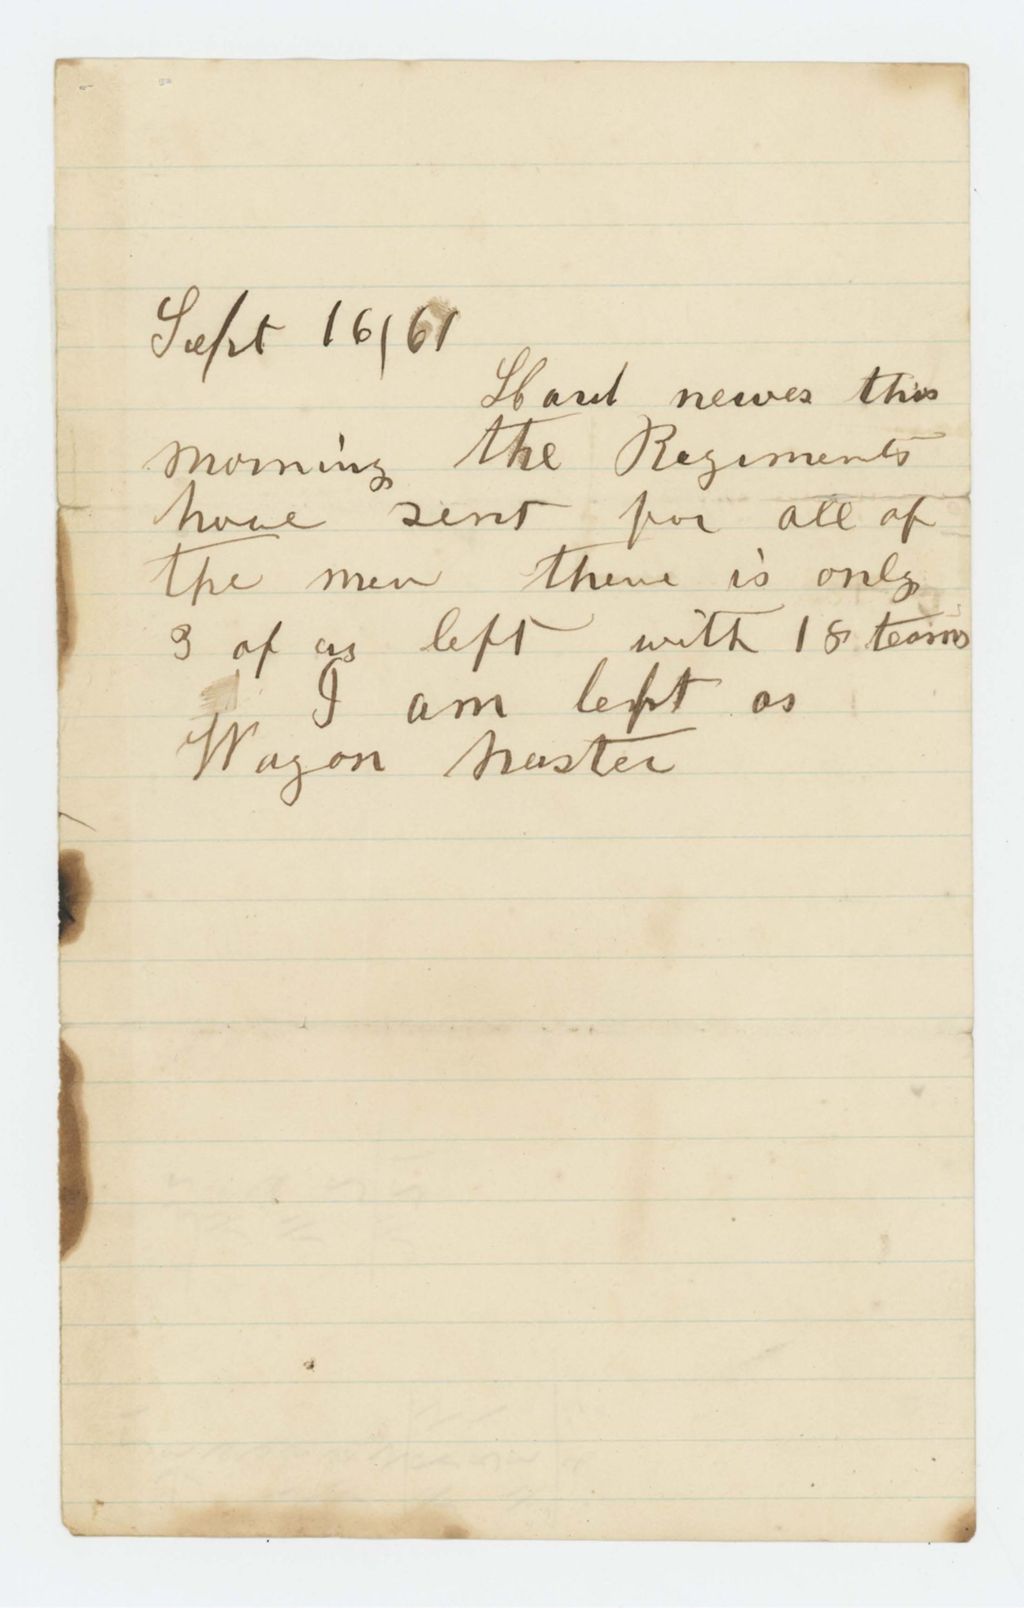 Sept 16/61
Hard newes this
morning the Regiments
have sent for all of
the men there is only
3 of us left with 18 teams
I am left as
Wagon Master